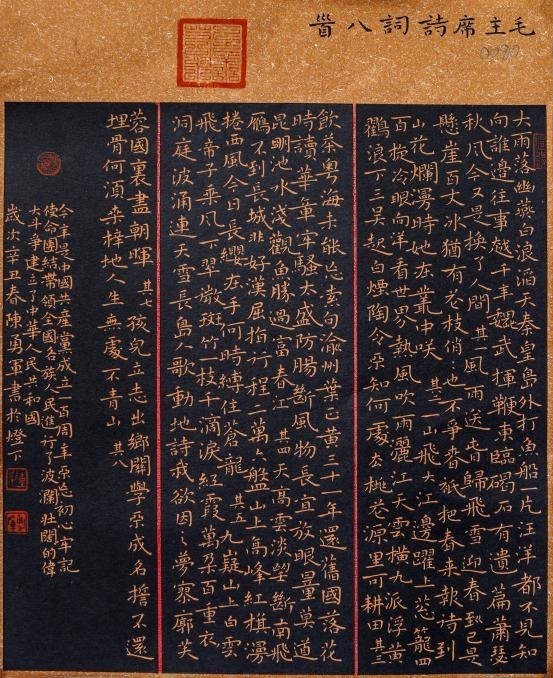 毛主席詩詞八首
大雨落幽燕白浪滔天秦皇島外打魚船片汪洋都不見知
向誰邊往事越千年魏武揮鞭東臨碣石有遺篇蕭瑟
秋風今又是換了人間 其一 風雨送春歸飛雪迎春到已是
懸崖百丈冰猶有花枝俏:也不爭春衹把春來報待到
山花爛漫時她在叢中咲 其二 一山飛大江邊躍上蔥籠四
百旋冷眼向洋看世界熱風吹雨灑江天雲橫九派浮黃
鶴浪下三吴起白煙陶令不知何處去桃花源里可耕田 其三
飲茶粤海未能忘索句渝州葉正黃三十一年還舊國落花
時讀華章牢騷太盛防腸斷風物長宜放眼量莫道
昆明池水淺觀魚勝過富春江 其四 天高雲淡望斷南飛
雁不到長城非好漢屈指行程二萬六盤山上高峰紅旗漫
捲西風今日長纓在手何時縛住蒼龍 其五 九嶷山上白雲
飛帝子乘風下翠微斑竹一枝千滴淚紅霞萬朵百重衣
洞庭波涌連天雪長島人歌動地詩我欲因之夢寥廓芙
蓉國裏盡朝暉 其七 孩兒立志出鄉關學不成名誓不還
埋骨何須桑梓地人生無處不青山 其八
今年是中國共產黨成立一百周年不忘初心牢記
使命團結帶領全國各族人民進行了波瀾壯闊的偉
大斗爭建立了中華人民共和國
歲次辛丑春陳勇軍書於燈下